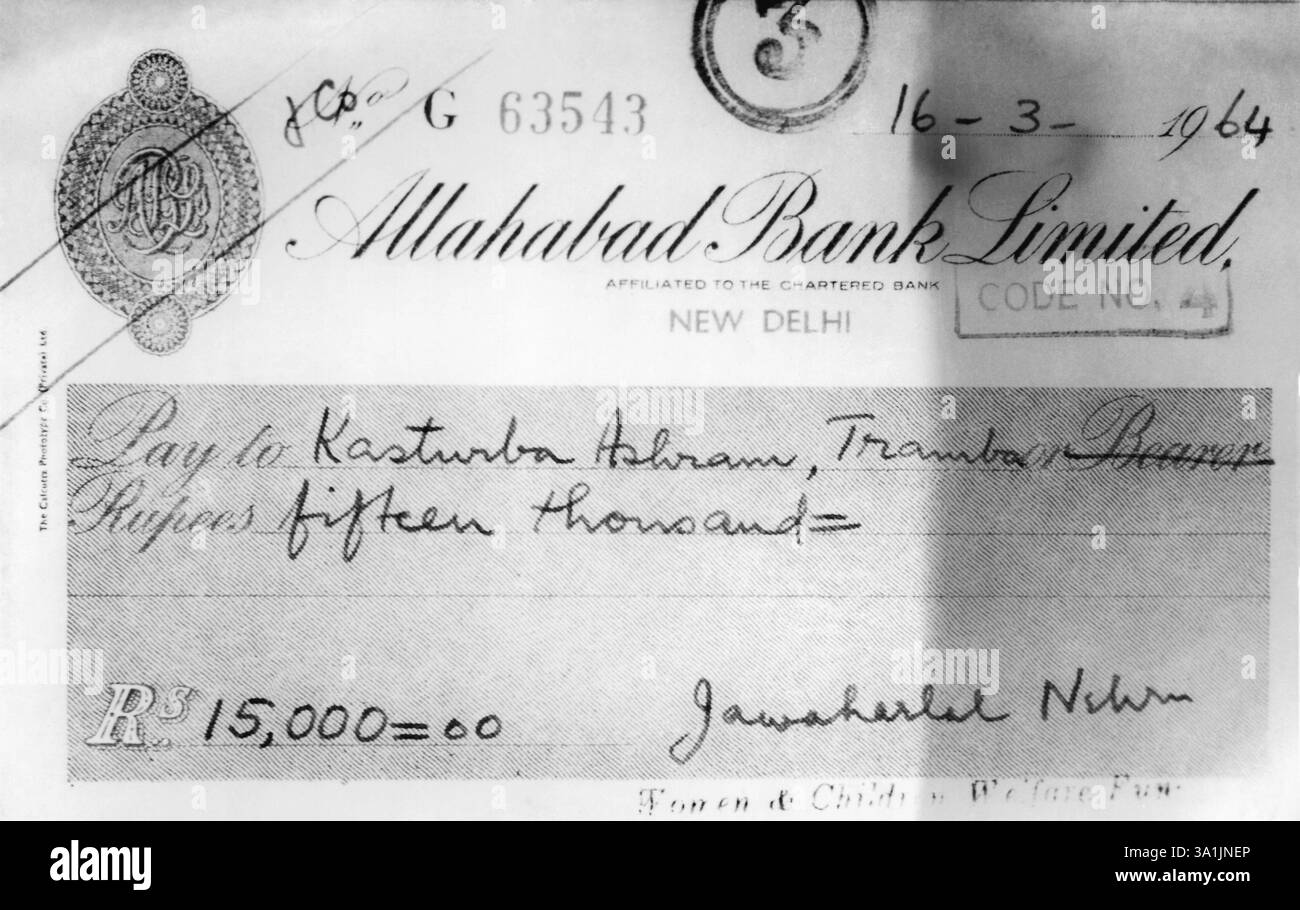 3
& Co. G 63543 16-3-1964
Allahabad Bank Limited.
AFFILIATED TO THE CHARTERED BANK
NEW DELHI
CODE NO. 4
The Calcutta Phototype Co. (Private) Ltd
Pay to Kasturba Ashram, Tramba or Bearer
Rupees fifteen thousand=
Rs. 15,000=00
Jawaharlal Nehru
Women & Children Welfare Fun
a alamy
alamy
Image ID: 3A1JNEP
www.alamy.com